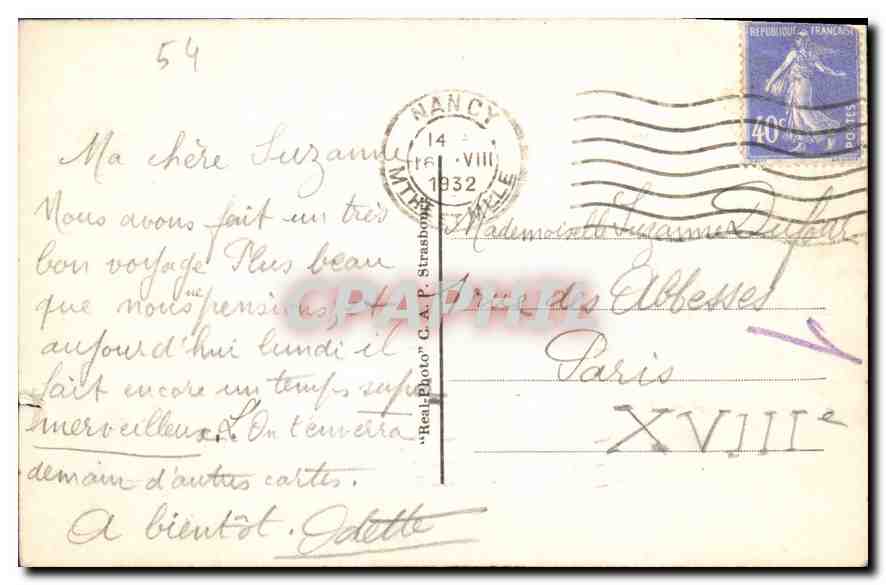 54
REPUBLIQUE FRANÇAISE
40c
POSTES
NANCY
14
16 VIII
1932
MTHE ET MELLE
Ma chère Suzanne
Nous avons fait un très
bon voyage Plus beau
que nous ne pensions, et
aujourd'hui lundi il
fait encore un temps
merveilleux. On t'enverra
demain d'autres cartes.
A bientôt. Odette
"Real-Photo" C. A. P. Strasbourg
Mademoiselle Suzanne Dufour
rue des Abbesses
Paris
XVIIIe
CPAPHIL